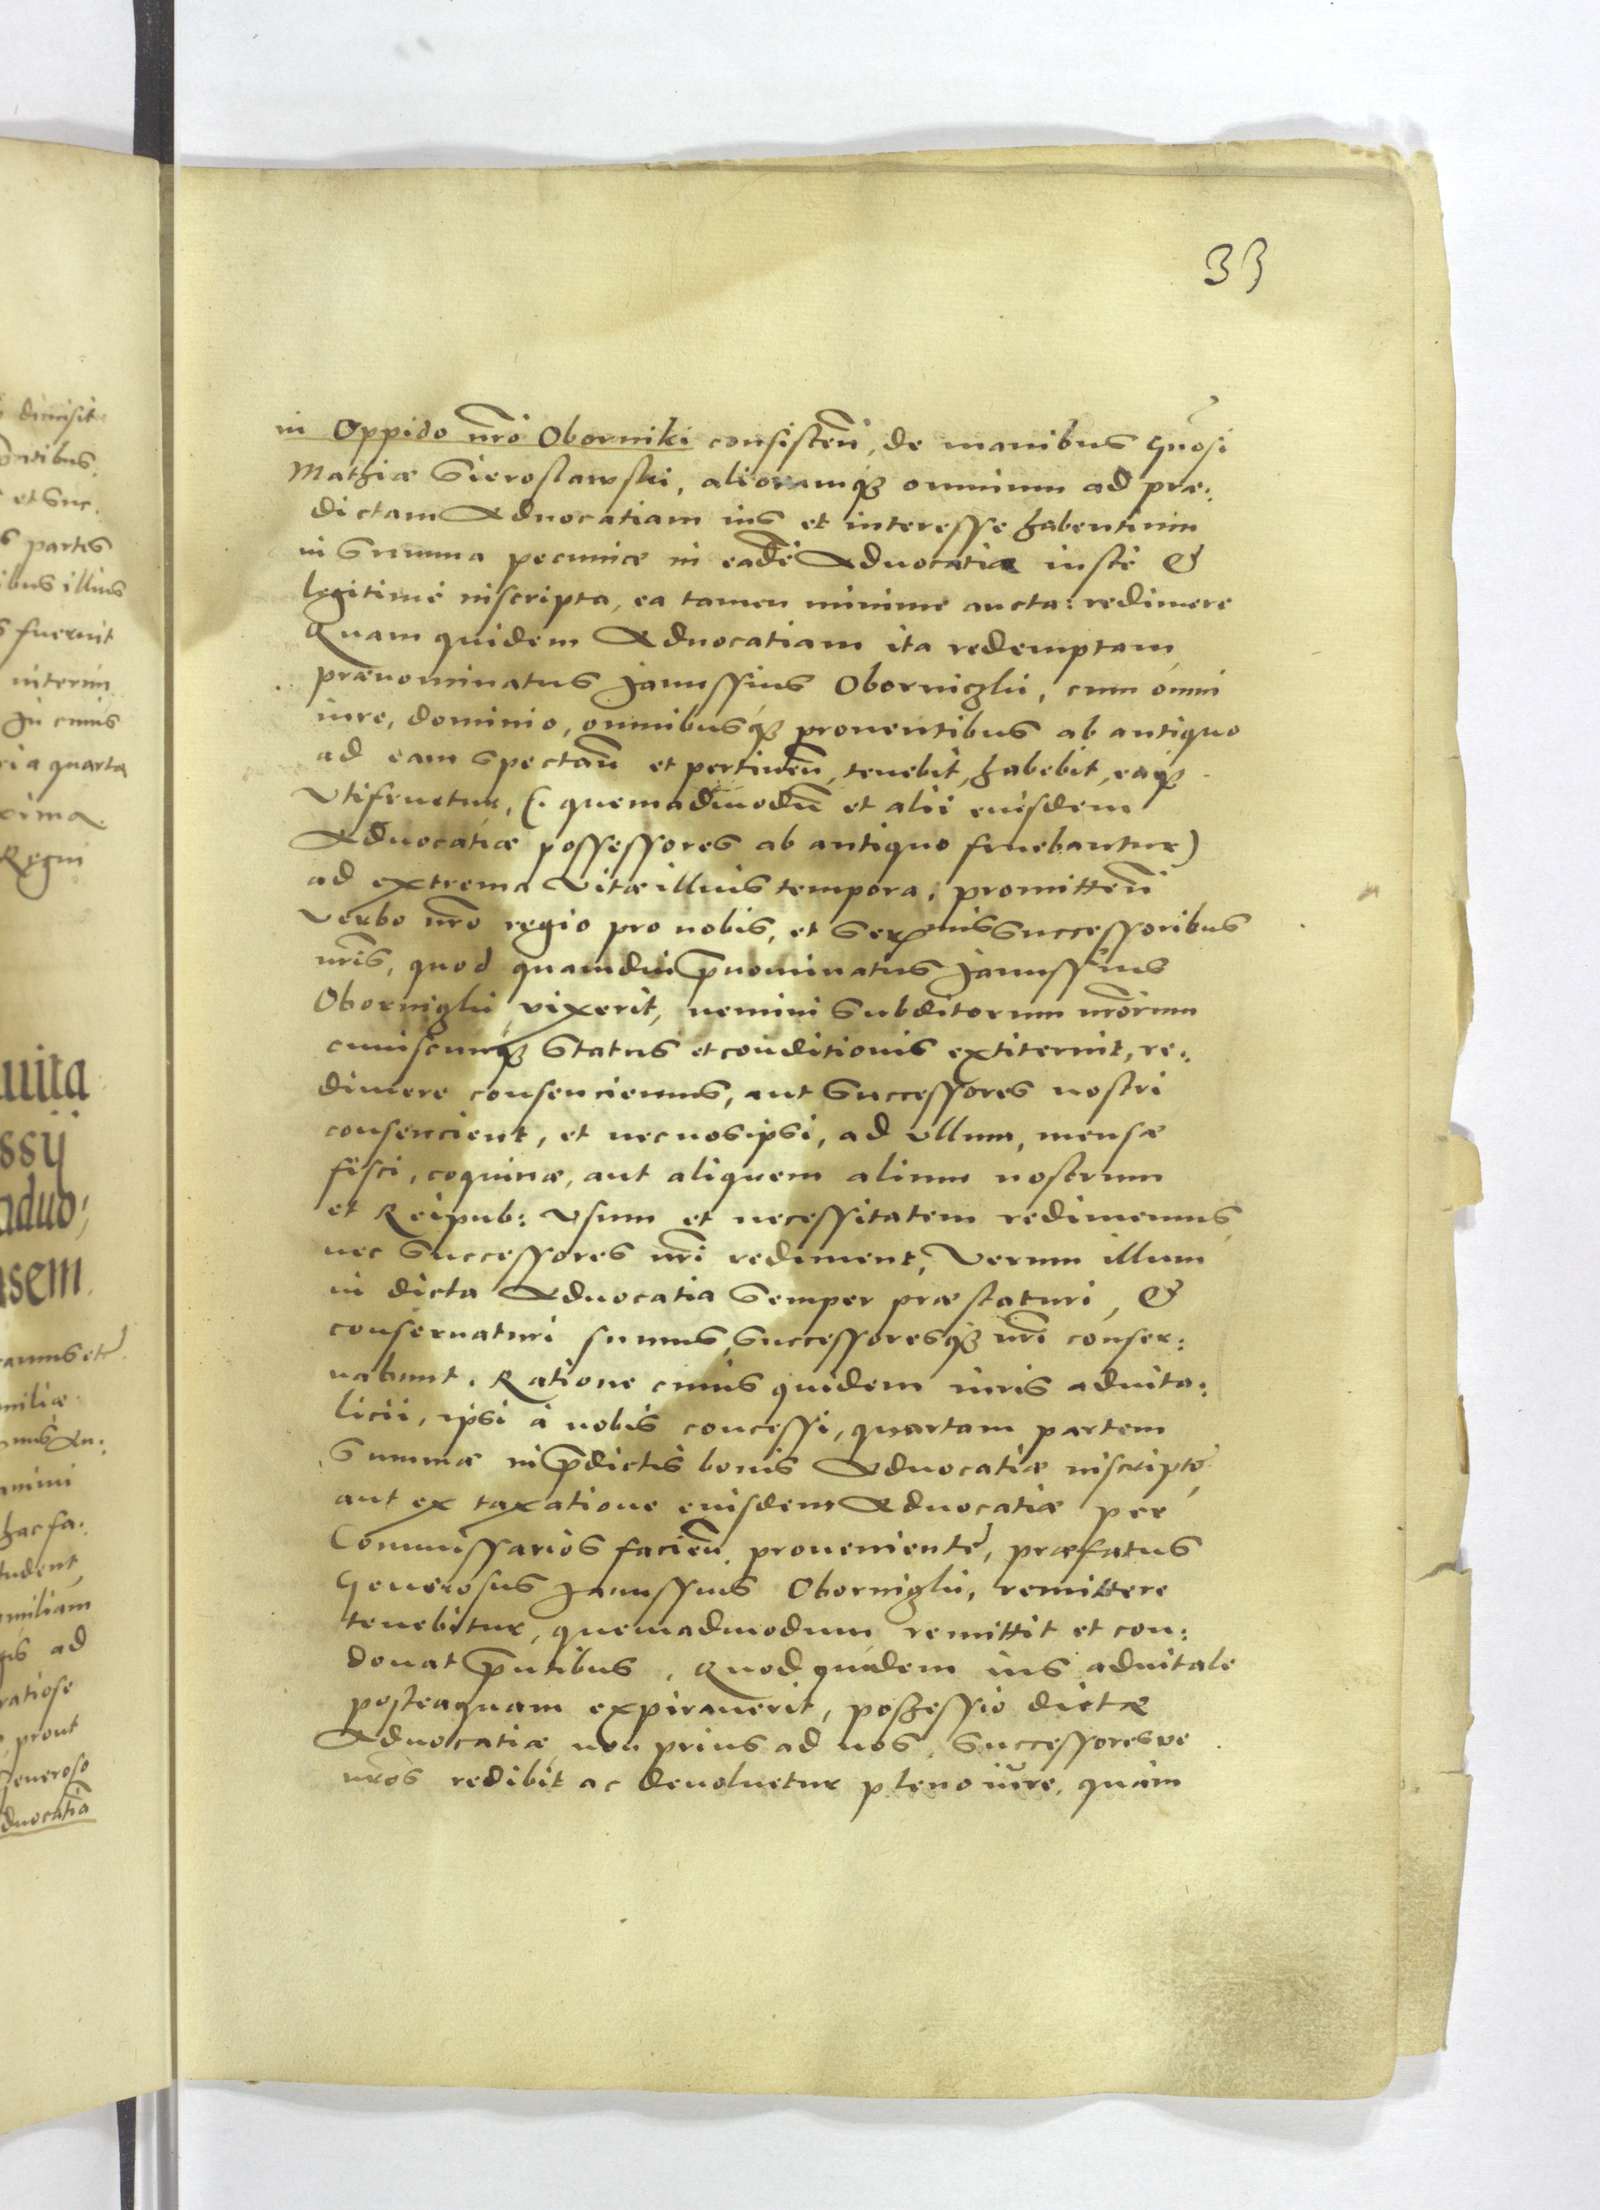 33
in Oppido nrō Oborniki consisteñ, de manibus Gnōsi
Mathiæ Sierosławski, aliorumq; omnium ad præ:
dictam Aduocatiam ius et interesse habentium
in Summa pecuniæ in eadē Aduocatia iuste &
legitimè inscripta, ea tamen minime aucta: redimere
Quam quidem Aduocatiam ita redemptam
prænominatus Janussius Oborniczki, cum omni
iure, dominio, omnibusq; prouentibus ab antiquo
ad eam spectañ et pertineñ, tenebit, habebit, eaq;
Vtifruetur, (: quemadmodū et alii eiusdem
Aduocatiæ possessores ab antiquo fruebantur)
ad extrema Vitæ illius tempora, promitteñ
Verbo nrō regio pro nobis, et Serenis Successoribus
nrīs, quod quamdiu p̄nominatus Janussius
Oborniczki vixerit, nemini Subditorum nrōrum
cuiuscunq; Status et conditionis extiterint, re:
dimere consenciemus, aut Successores nostri
consencient, et nec nos ipsi, ad vllum, mensæ
fisci, coquinæ, aut aliquem alium nostrum
et Reipub: Vsum et necessitatem redimemus
nec Successores nrī rediment, Verum illum
in dicta Aduocatia Semper præstaturi, &
conseruaturi sumus, Successoresq; nrī conser:
uabunt. Ratione cuius quidem iuris aduita:
licii, ipsi à nobis concessi, quartam partem
Summæ in p̄dictis bonis Aduocatiæ inscripte,
aut ex taxatione eiusdem Aduocatiæ per
Commissarios facieñ prouenientē, præfatus
Generosus Janussius Oborniczki, remittere
tenebitur, quemadmodum remittit et con:
donat p̄ntibus. Quod quidem ius aduitale
posteaquam expirauerit, possessio dictæ
Aduocatiæ non prius ad nos, Successoresve
nrōs redibit ac deuoluetur pleno iure, quàm